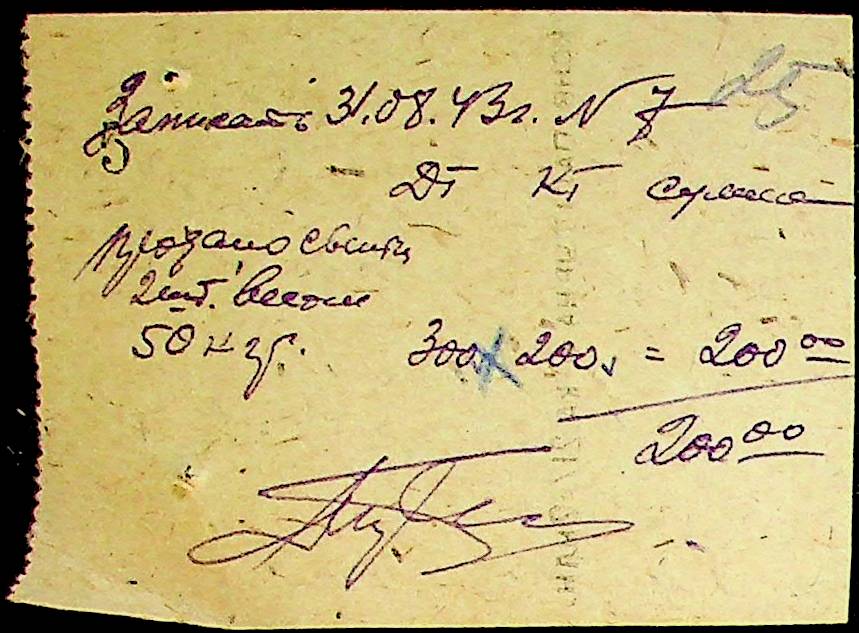 25
Записать 31.08.43г. N 7
Дт Кт сумма
продано свиньи
2шт. весом
50 кгр. 300. x 200. = 200 00
200 00